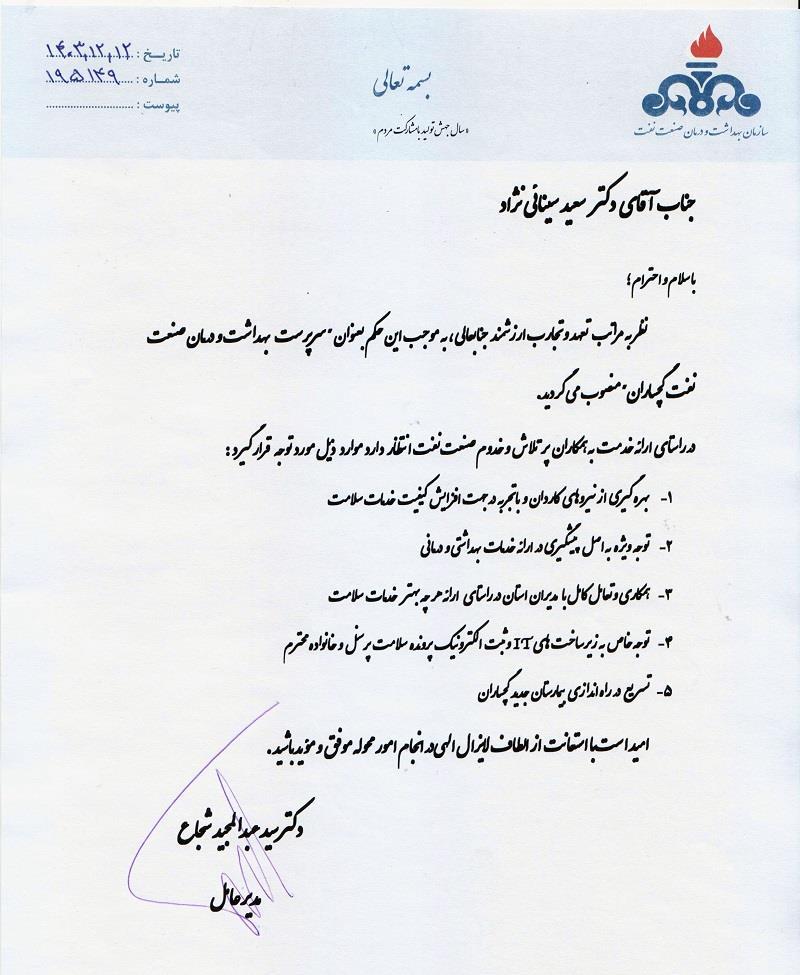 تاریخ : ۱۴۰۳,۱۲,۱۲
شماره : ۱۹۵۱۴۹
پیوست :
بسمه تعالی
«سال جهش تولید با مشارکت مردم»
سازمان بهداشت و درمان صنعت نفت
جناب آقای دکتر سعید سینائی نژاد
با سلام و احترام؛
نظر به مراتب تعهد و تجارب ارزشمند جنابعالی، به موجب این حکم بعنوان "سرپرست بهداشت و درمان صنعت
نفت گچساران" منصوب می گردید.
در راستای ارائه خدمت به همکاران پر تلاش و خدوم صنعت نفت انتظار دارد موارد ذیل مورد توجه قرار گیرد:
۱- بهره گیری از نیروهای کاردان و باتجربه در جهت افزایش کیفیت خدمات سلامت
۲- توجه ویژه به اصل پیشگیری در ارائه خدمات بهداشتی و درمانی
۳- همکاری و تعامل کامل با مدیران استان در راستای ارائه هر چه بهتر خدمات سلامت
۴- توجه خاص به زیرساخت های IT و ثبت الکترونیک پرونده سلامت پرسنل و خانواده محترم
۵- تسریع در راه اندازی بیمارستان جدید گچساران
امید است با استعانت از الطاف لایزال الهی در انجام امور محوله موفق و مؤید باشید.
دکتر سید عبدالمجید شجاع
مدیرعامل